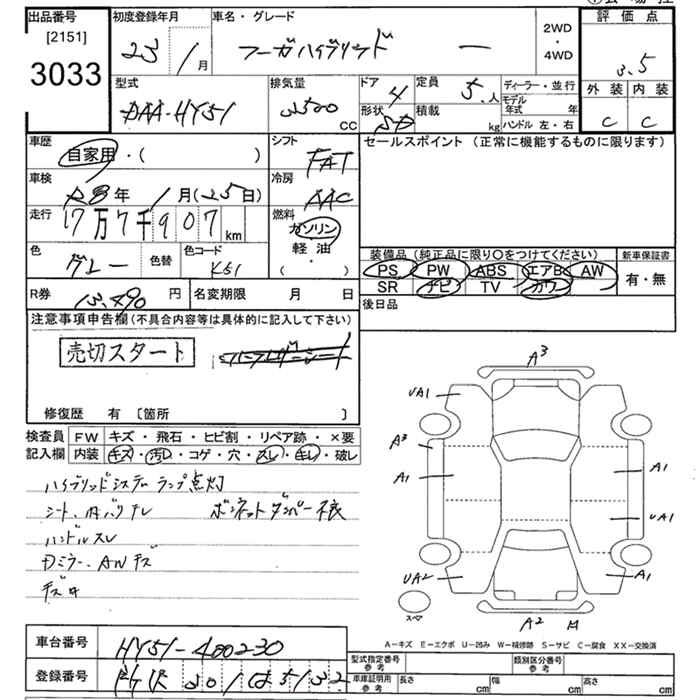 出品番号
[2151]
3033
初度登録年月
23 / 1 月
車名・グレード
フーガハイブリッド ー
2WD
・
4WD
評価点
3.5
外装 内装
C C
型式
DAA-HY51
排気量
3500 CC
ドア 4
形状 SD
定員 5.人
積載 kg
ディーラー・並行
モデル年式 年
ハンドル 左・右
車歴
自家用・( )
シフト
FAT
車検
R8年 1月(25日)
冷房
AAC
走行
17万7千907 km
燃料
ガソリン
軽油
・
( )
色
グレー
色替
色コード
K51
R券 13,490 円
名変期限 月 日
セールスポイント (正常に機能するものに限ります)
装備品 (純正品に限り○をつけてください)
新車保証書
PS PW ABS エアB AW
SR ナビ TV カワ
有・無
後日品
注意事項申告欄(不具合内容等は具体的に記入して下さい)
売切スタート
修復歴 有 [箇所 ]
検査員 FW キズ・飛石・ヒビ割・リペア跡・×要
記入欄 内装 キズ・汚レ・コゲ・穴・スレ・キレ・破レ
ハイブリッドシステムランプ点灯
シート、内バリナレ ボンネットダンパー不良
ハンドルスレ
Dミラー、ANキズ
キズ有
A3
UA1
A3
A1
A1
UA1
UA2
A1
スペア
A2 M
A-キズ E-エクボ U-凹み W-補修跡 S-サビ C-腐食 XX-交換済
車台番号
HY51-400230
登録番号
型式指定番号
参考
類別区分番号
参考
車庫証明用
参考
長さ cm
幅 cm
高さ cm